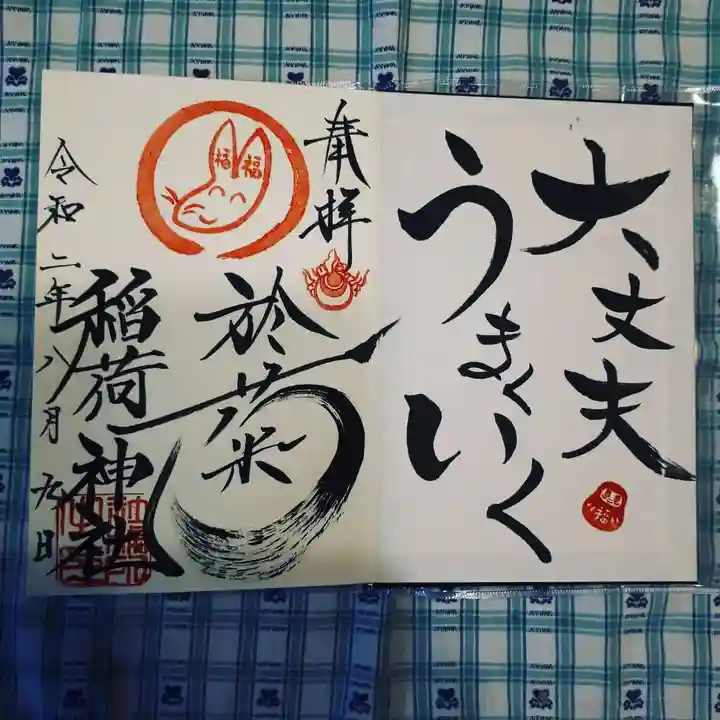 大丈夫
うまくいく
福
奉拝
福福
於菊
稲荷神社
令和二年八月九日